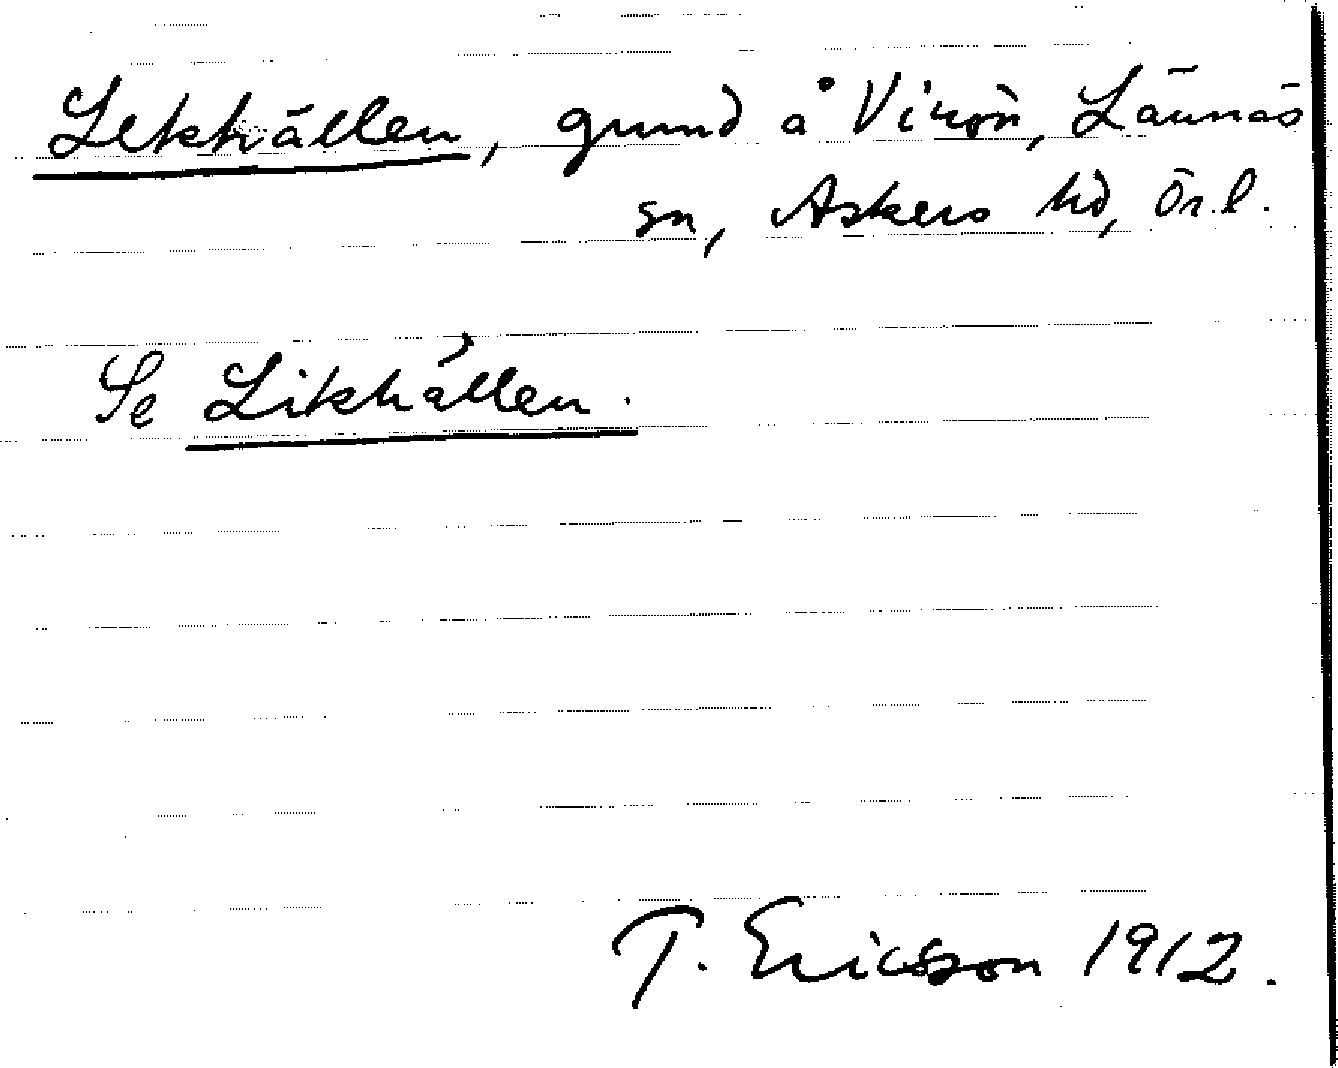 Lekhällen, grund å Vinön, Lännäs
sn, Askers hd, Ör.l.
Se Likhällen.
T. Ericsson 1912.